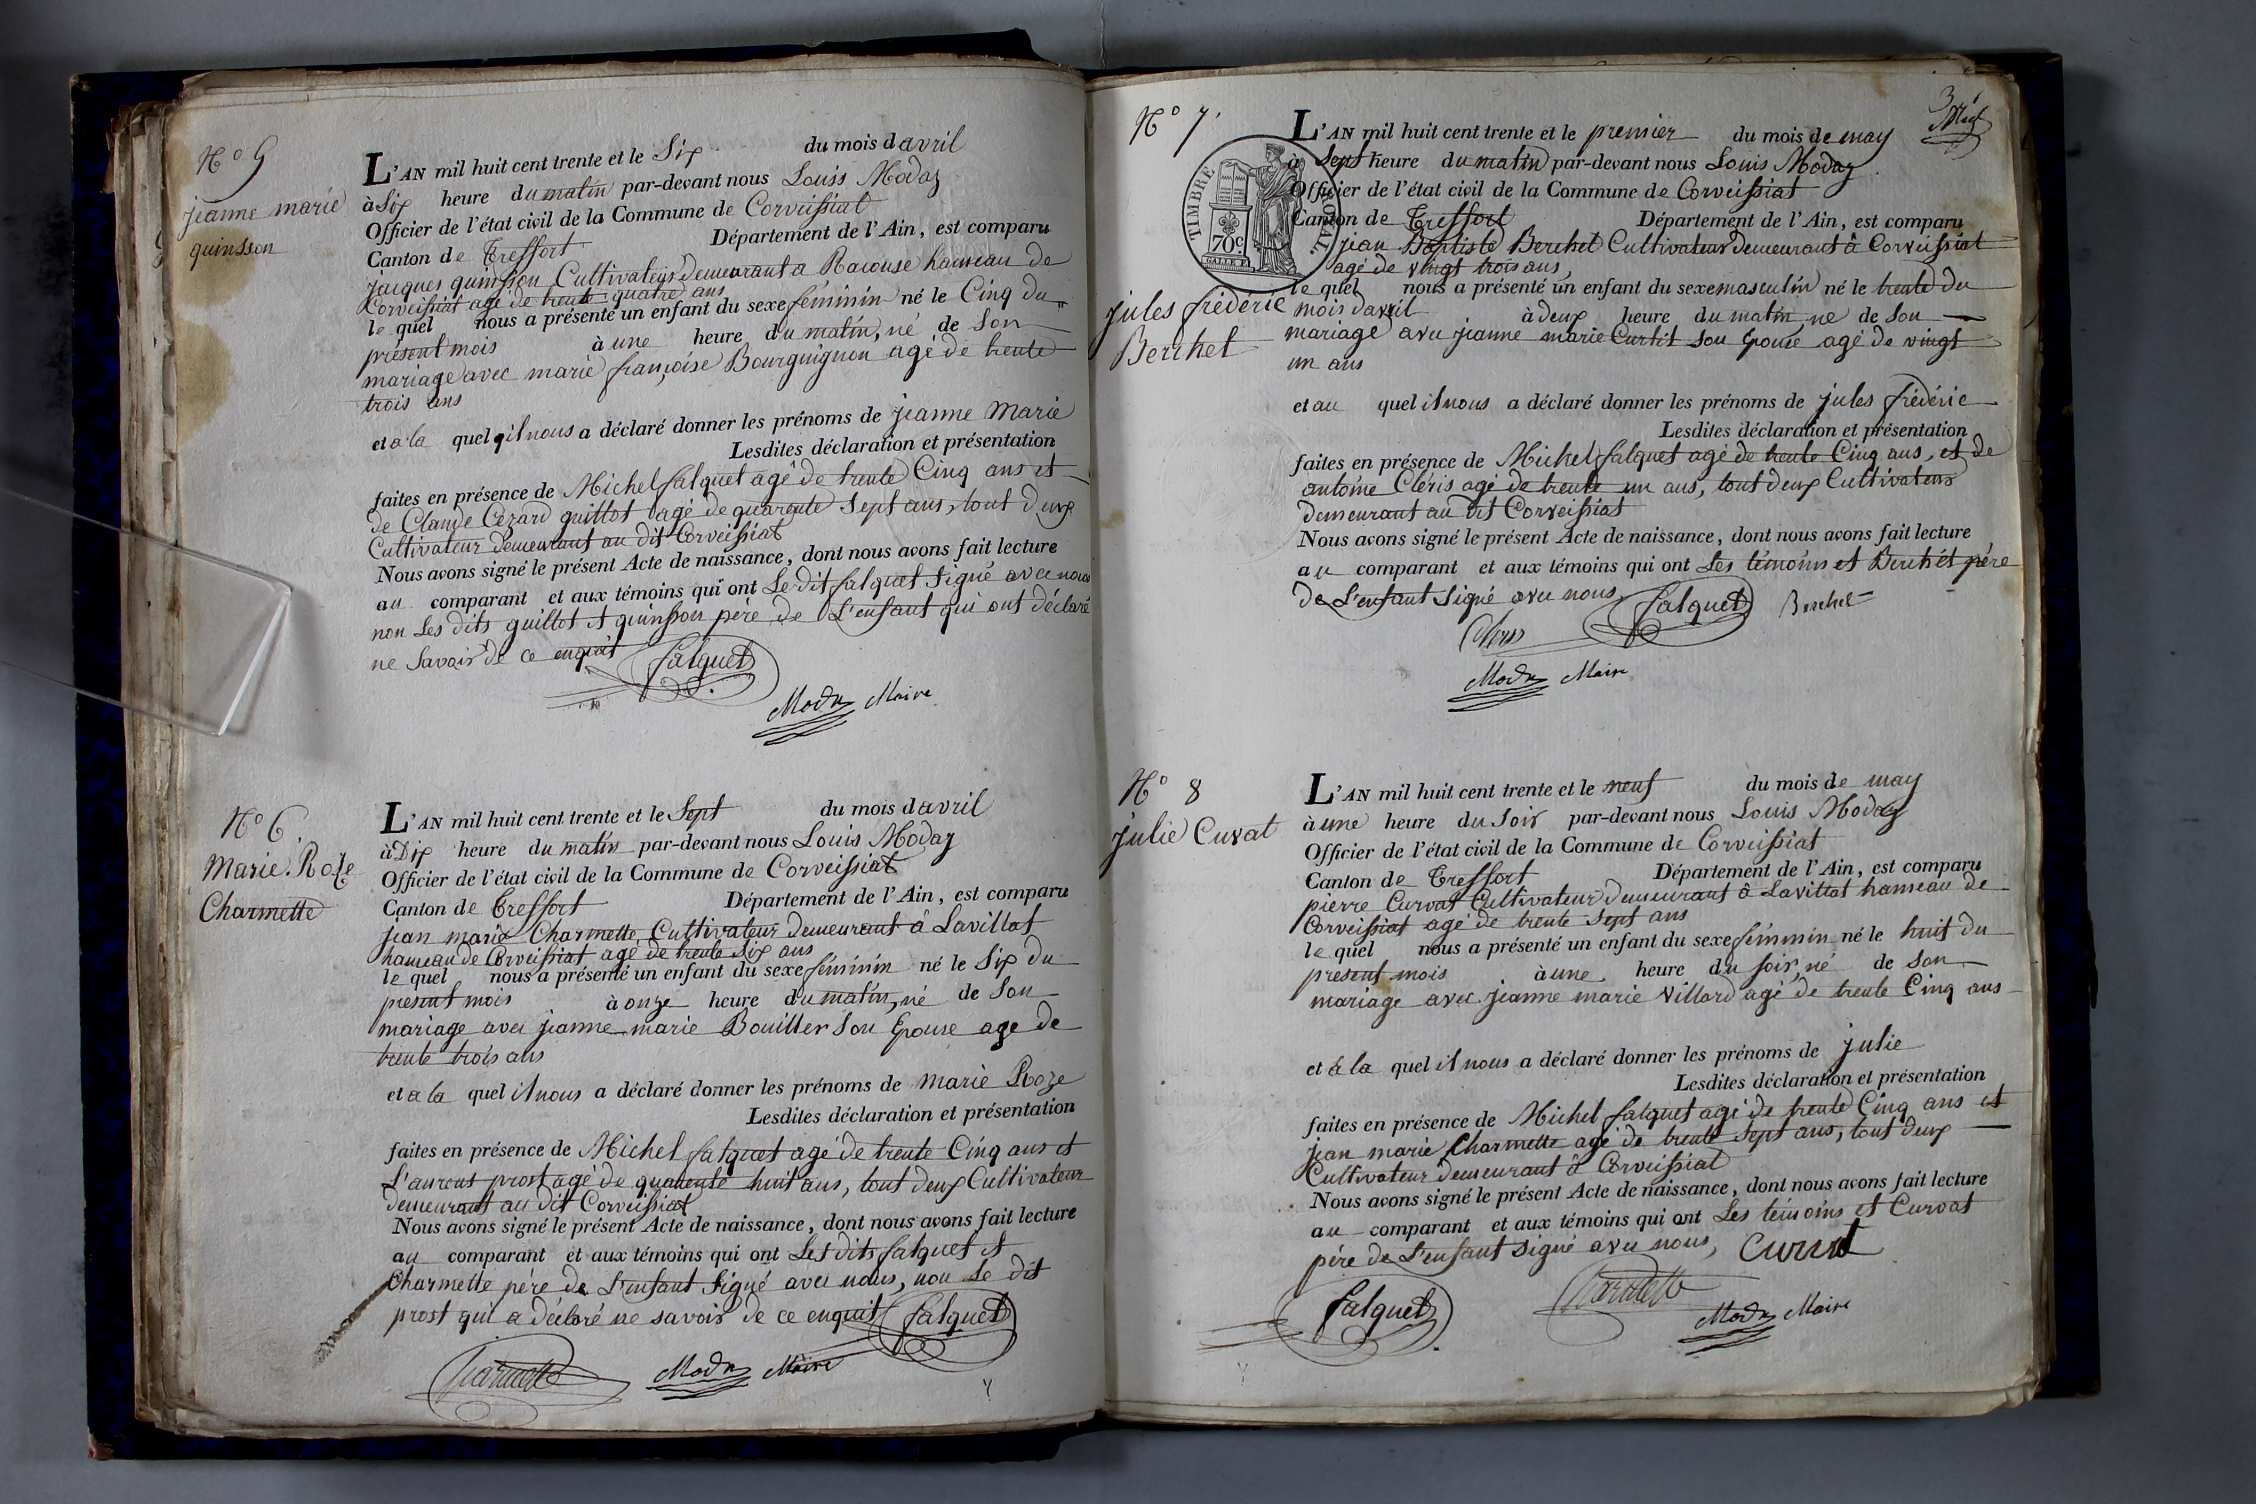 N° 5
jeanne marie
quinsson
L'AN mil huit cent trente et le Six du mois d avril
à Six heure du matin par-devant nous Louis Modas
Officier de l'état civil de la Commune de Corveissiat
Canton de Treffort Département de l'Ain, est comparu
jacques quinsson Cultivateur demeurant a Racouse hameau de
Corveissiat agé de trente quatre ans
le quel nous a présenté un enfant du sexe féminin né le Cinq du
présent mois à une heure du matin, né de Son
mariage avec marie françoise Bourguignon agé de trente
trois ans
et a la quel il nous a déclaré donner les prénoms de jeanne Marie
Lesdites déclaration et présentation
faites en présence de Michel falquet agé de trente Cinq ans et
de Claude Cézard guillot agé de quarante Sept ans, tout deux
Cultivateur demeurant au dit Corveissiat
Nous avons signé le présent Acte de naissance, dont nous avons fait lecture
au comparant et aux témoins qui ont Le dit falquet Signé avec nous
non Les dits guillot et quinsson père de L'enfant qui ont déclaré
ne Savoir de ce enquit falquet
Modas Maire
N° 6.
Marie Roze
Charmette
L'AN mil huit cent trente et le Sept du mois d avril
à Dix heure du matin par-devant nous Louis Modas
Officier de l'état civil de la Commune de Corveissiat
Canton de Treffort Département de l'Ain, est comparu
jean marie Charmette Cultivateur Demeurant à Lavillat
hameau de Corveissiat agé de trente Six ans
le quel nous a présenté un enfant du sexe féminin né le Six du
présent mois à onze heure du matin, né de Son
mariage avec jeanne marie Bouiller Son Epouse age de
trente trois ans
et a la quel il nous a déclaré donner les prénoms de marie Roze
Lesdites déclaration et présentation
faites en présence de Michel falquet agé de trente Cinq ans et
L'aurent prost agé de quarente huit ans, tout deux Cultivateur
demeurant au dit Corveissiat
Nous avons signé le présent Acte de naissance, dont nous avons fait lecture
au comparant et aux témoins qui ont Les dits falquet et
Charmette père de L'enfant Signé avec nous, non Le dit
prost qui a déclaré ne savoir de ce enquit falquet
Charmette Modas Maire
3
N° 7.
jules frédéric
Berchet
TIMBRE ROYAL.
70c
L'AN mil huit cent trente et le premier du mois de may
à Sept heure du matin par-devant nous Louis Modas
Officier de l'état civil de la Commune de Corveissiat
Canton de Treffort Département de l'Ain, est comparu
jean Baptiste Berchet Cultivateur demeurant à Corveissiat
agé de vingt trois ans,
le quel nous a présenté un enfant du sexe masculin né le trente du
mois d avril à deux heure du matin, né de Son
mariage avec jeanne marie Curtit Son Epouse agé de vingt
un ans
et au quel il nous a déclaré donner les prénoms de jules frédéric
Lesdites déclaration et présentation
faites en présence de Michel falquet agé de trente Cinq ans, et de
antoine Cléris agé de trente un ans, tout deux Cultivateurs
Demeurant au dit Corveissiat
Nous avons signé le présent Acte de naissance, dont nous avons fait lecture
au comparant et aux témoins qui ont Les témoins et Berchet père
de L'enfant Signé avec nous, falquet Berchet
Modas Maire
N° 8
julie Curvat
L'AN mil huit cent trente et le neuf du mois de may
à une heure du Soir par-devant nous Louis Modas
Officier de l'état civil de la Commune de Corveissiat
Canton de Treffort Département de l'Ain, est comparu
pierre Curvat Cultivateur Demeurant à Lavillat hameau de
Corveissiat agé de trente Sept ans
le quel nous a présenté un enfant du sexe féminin né le huit du
present mois à une heure du soir, né de Son
mariage avec jeanne marie Villard agé de trente Cinq ans
et à la quel il nous a déclaré donner les prénoms de julie
Lesdites déclaration et présentation
faites en présence de Michel falquet agé de trente Cinq ans et
jean marie Charmette agé de trente Sept ans, tout deux
Cultivateur demeurant à Corveissiat
Nous avons signé le présent Acte de naissance, dont nous avons fait lecture
au comparant et aux témoins qui ont Les témoins et Curvat
père de L'enfant Signé avec nous, Curvat
falquet Charmette
Modas Maire